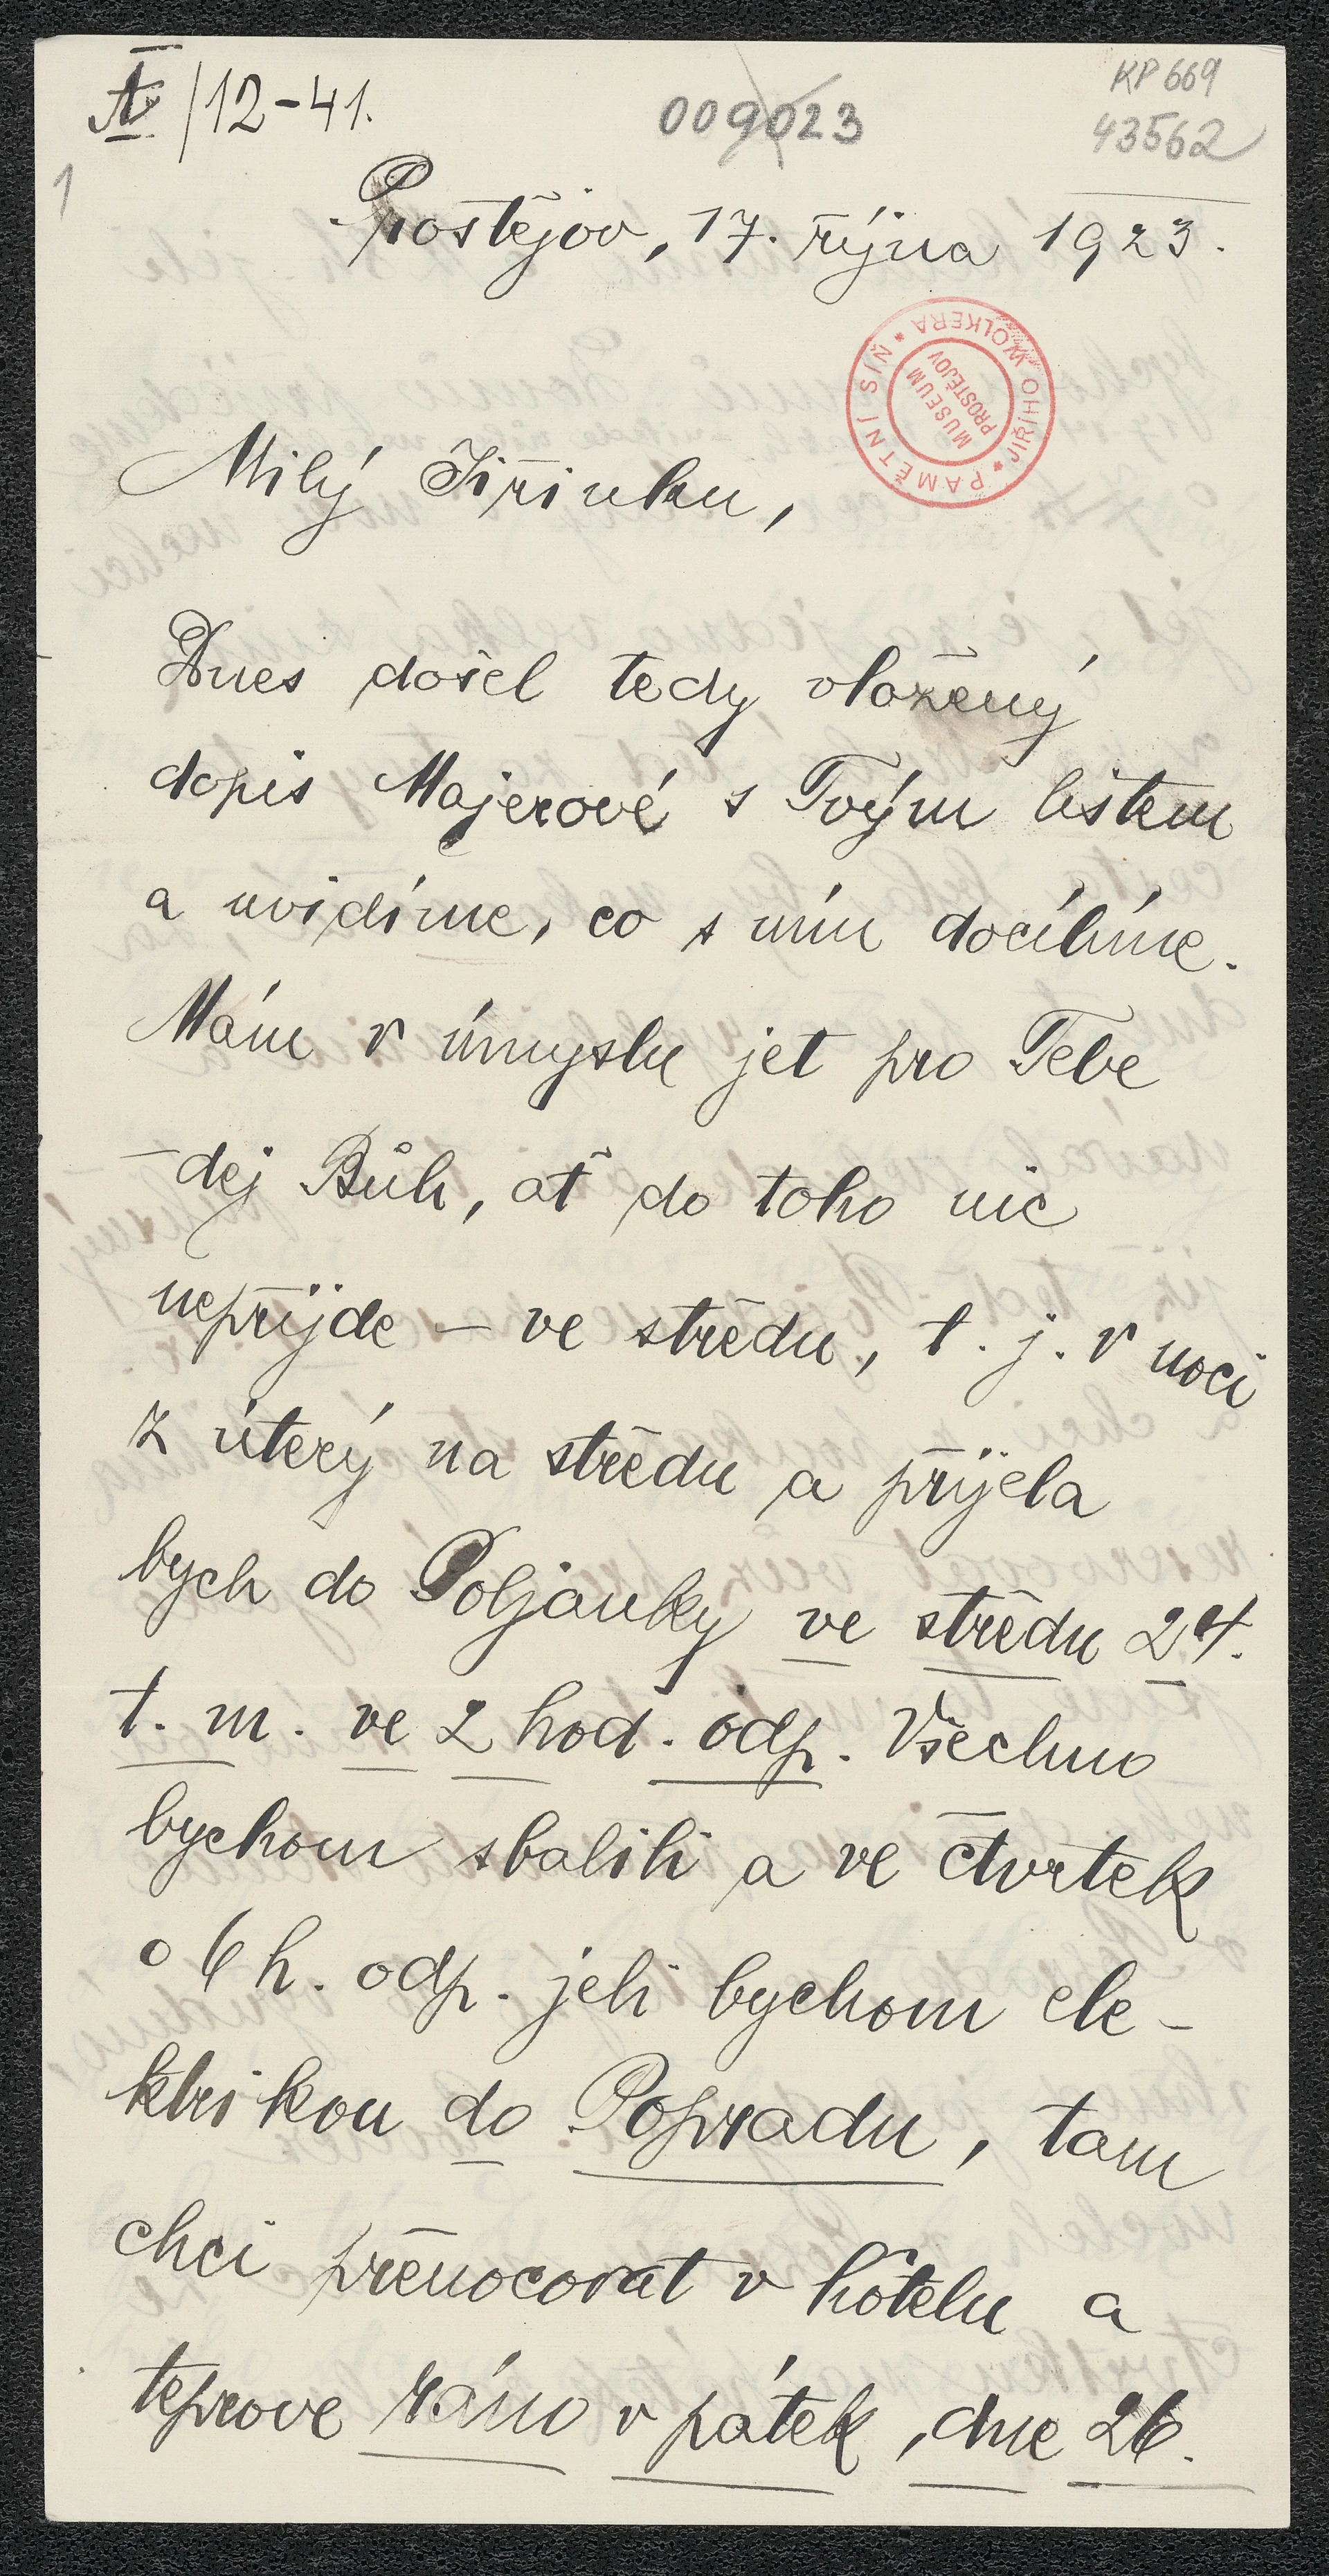 IV/12-41.
009023
KP 669
43562
1
Prostějov, 17. října 1923.
PAMĚTNÍ SÍŇ * JIŘÍHO WOLKERA *
MUSEUM
PROSTĚJOV
Milý Jiřinku,
Dnes došel tedy vložený
dopis Majerové s Tvým listem
a uvidíme, co s ním docílíme.
Mám v úmyslu jet pro Tebe
– dej Bůh, ať do toho nic
nepřijde – ve středu, t. j. v noci
z úterý na středu a přijela
bych do Poljanky ve středu 24.
t. m. ve 2 hod. odp. Všechno
bychom sbalili a ve čtvrtek
o 6 h. odp. jeli bychom ele-
ktrikou do Popradu, tam
chci přenocovat v hôtelu a
teprove ráno v pátek, dne 26.